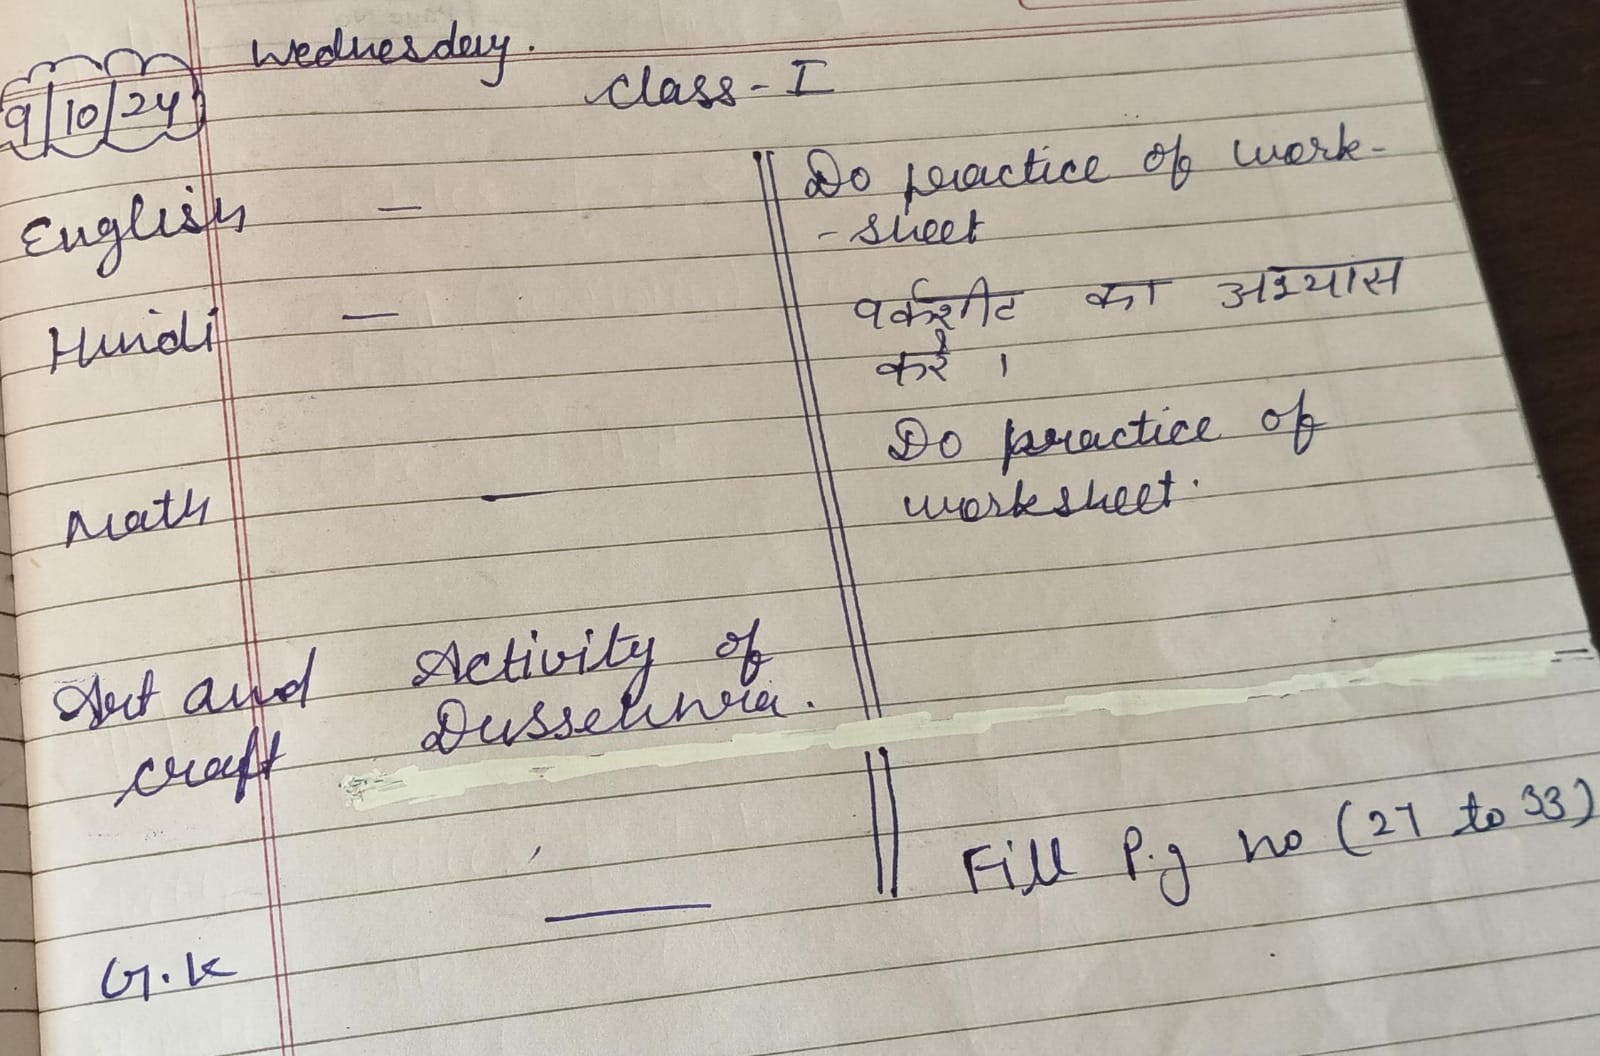 Wednesday.
9/10/24
Class - I
English — Do practice of work-
- sheet
Hindi — वर्कशीट का अभ्यास
करें ।
Math — Do practice of
worksheet.
Art and Activity of
craft Dussehhra.
G.K — Fill P.g no (27 to 33)